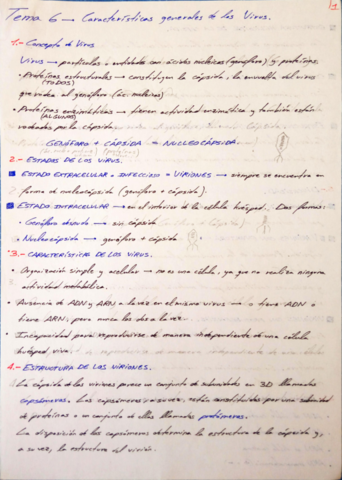 1
Tema 6 → Características generales de los Virus.
1.- Concepto de Virus
Virus → partículas o entidades con ácidos nucleicos (genóforo) y proteínas.
• Proteínas estructurales → constituyen la cápsida, la envuelta del virus
(TODOS)
que rodea al genóforo (ác. nucleico)
• Proteínas enzimáticas → tienen actividad enzimática y también están
(ALGUNOS)
rodeadas por la cápsida.
GENÓFORO + CÁPSIDA = NUCLEOCÁPSIDA
2.- ESTADOS DE LOS VIRUS.
ESTADO EXTRACELULAR o INFECCIOSO → VIRIONES → siempre se encuentra en
forma de nucleocápsida (genóforo + cápsida).
ESTADO INTRACELULAR → en el interior de la célula huésped. Dos formas:
• Genóforo desnudo → sin cápsida
• Nucleocápsida → genóforo + cápsida
3.- CARACTERÍSTICAS DE LOS VIRUS.
• Organización simple y acelular → no es una célula, ya que no realiza ninguna
actividad metabólica.
• Ausencia de ADN y ARN a la vez en el mismo virus → o tiene ADN o
tiene ARN, pero nunca los dos a la vez.
• Incapacidad para reproducirse de manera independiente de una célula
huésped viva.
4.- ESTRUCTURA DE LOS VIRIONES.
La cápsida de los viriones posee un conjunto de subunidades en 3D llamadas
capsómeros. Los capsómeros a su vez, están constituidos por una subunidad
de proteínas o un conjunto de ellas llamadas protómeros.
La disposición de los capsómeros determina la estructura de la cápsida y,
a su vez, la estructura del virión.